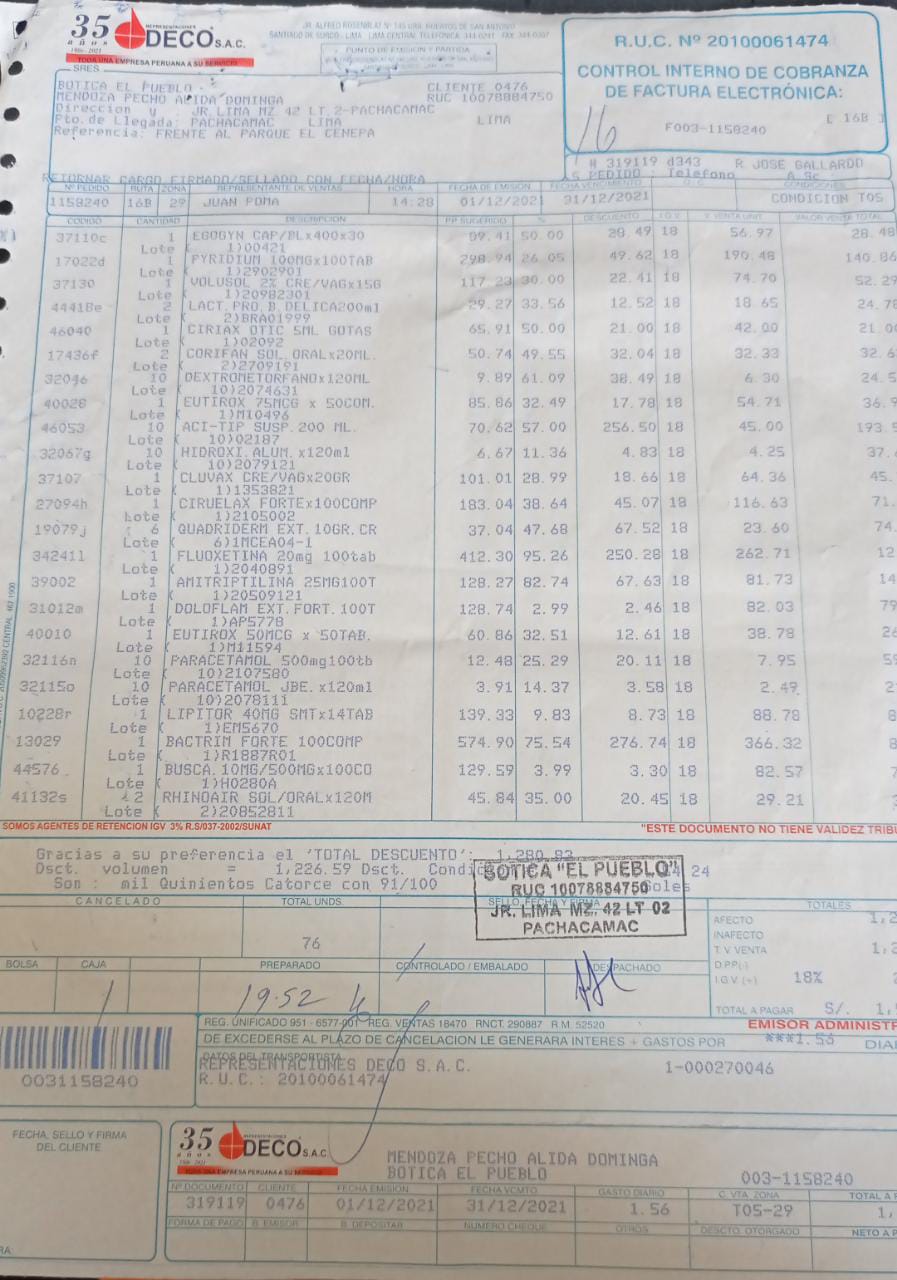 35 años 1986-2021 REPRESENTACIONES DECO S.A.C.
TODA UNA EMPRESA PERUANA A SU SERVICIO
JR. ALFREDO ROSENBLAT Nº 145 URB. HUERTOS DE SAN ANTONIO
SANTIAGO DE SURCO - LIMA LIMA CENTRAL TELEFONICA:
PUNTO DE EMISION Y PARTIDA
R.U.C. Nº 20100061474
CONTROL INTERNO DE COBRANZA
DE FACTURA ELECTRÓNICA:
16
F003-1158240
16B
SRES
BOTICA EL PUEBLO CLIENTE 0476
MENDOZA PECHO ALIDA DOMINGA RUC 10078884750
Direccion y : JR.LIMA MZ 42 LT.2-PACHACAMAC
Pto.de Llegada: PACHACAMAC LIMA LIMA
Referencia: FRENTE AL PARQUE EL CENEPA
# 319119 d343 R JOSE GALLARDO
RETORNAR CARGO FIRMADO/SELLADO CON FECHA/HORA
PEDIDO : Telefono
Nº PEDIDO RUTA ZONA REPRESENTANTE DE VENTAS HORA FECHA DE EMISION FECHA VENCIMIENTO O/C CONDICIONES
1158240 16B 29 JUAN POMA 14:28 01/12/2021 31/12/2021 CONDICION T05
CODIGO CANTIDAD DESCRIPCION P.P. SUGERIDO % DESCUENTO I.G.V. V. VENTA UNIT. VALOR VENTA TOTAL
37110c 1 EGOGYN CAP/BLx400x30 89.41 50.00 28.49 18 56.97 28.48
Lote ( 1)00421
17022d 1 PYRIDIUM 100MGx100TAB 298.94 26.05 49.62 18 190.48 140.86
Lote ( 1)2902901
37130 1 VOLUSOL 2% CRE/VAGx15G 117.23 30.00 22.41 18 74.70 52.29
Lote ( 1)20982301
44418e 2 LACT.PRO.B.DELICA200ml 29.27 33.56 12.52 18 18.65 24.78
Lote ( 2)BRA01999
46040 1 CIRIAX OTIC 5ML GOTAS 65.91 50.00 21.00 18 42.00 21.00
Lote ( 1)02092
17436f 2 CORIFAN SOL.ORALx20ML. 50.74 49.55 32.04 18 32.33 32.6
Lote ( 2)2709191
32046 10 DEXTROMETORFANOx120ML 9.89 61.09 38.49 18 6.30 24.5
Lote ( 10)2074631
40028 1 EUTIROX 75MCG x 50COM. 85.86 32.49 17.78 18 54.71 36.9
Lote ( 1)M10496
46053 10 ACI-TIP SUSP.200 ML. 70.62 57.00 256.50 18 45.00 193.5
Lote ( 10)02187
32067g 10 HIDROXI.ALUM.x120ml 6.67 11.36 4.83 18 4.25 37.
Lote ( 10)2079121
37107 1 CLUVAX CRE/VAGx20GR 101.01 28.99 18.66 18 64.36 45.
Lote ( 1)1353821
27094h 1 CIRUELAX FORTEx100COMP 183.04 38.64 45.07 18 116.63 71.
Lote ( 1)2105002
19079j 6 QUADRIDERM EXT.10GR.CR 37.04 47.68 67.52 18 23.60 74.
Lote ( 6)1MCEA04-1
34241l 1 FLUOXETINA 20mg 100tab 412.30 95.26 250.28 18 262.71 12
Lote ( 1)2040891
39002 1 AMITRIPTILINA 25MG100T 128.27 82.74 67.63 18 81.73 14
Lote ( 1)20509121
31012m 1 DOLOFLAM EXT.FORT.100T 128.74 2.99 2.46 18 82.03 79
Lote ( 1)AP5778
40010 1 EUTIROX 50MCG x 50TAB. 60.86 32.51 12.61 18 38.78 26
Lote ( 1)M11594
32116n 10 PARACETAMOL 500mg100tb 12.48 25.29 20.11 18 7.95 59
Lote ( 10)2107580
32115o 10 PARACETAMOL JBE.x120ml 3.91 14.37 3.58 18 2.49 2
Lote ( 10)2078111
10228r 1 LIPITOR 40MG SMTx14TAB 139.33 9.83 8.73 18 88.78 8
Lote ( 1)EM5670
13029 1 BACTRIM FORTE 100COMP 574.90 75.54 276.74 18 366.32 8
Lote ( 1)R1887R01
44576 1 BUSCA.10MG/500MGx100CO 129.59 3.99 3.30 18 82.57 7
Lote ( 1)H0280A
41132s 2 RHINOAIR SOL/ORALx120M 45.84 35.00 20.45 18 29.21
Lote ( 2)20852811
SOMOS AGENTES DE RETENCION IGV 3% R.S/037-2002/SUNAT "ESTE DOCUMENTO NO TIENE VALIDEZ TRIBU
Gracias a su preferencia el 'TOTAL DESCUENTO': 1,280.83
Dsct. volumen = 1,226.59 Dsct. Condic 24
Son : mil Quinientos Catorce con 91/100 Soles
BOTICA "EL PUEBLO"
RUC 10078884750
JR. LIMA MZ. 42 LT 02
PACHACAMAC
CANCELADO TOTAL UNDS. SELLO, FECHA Y FIRMA TOTALES
76
AFECTO 1,2
INAFECTO
T.V. VENTA 1,2
D.PP(-)
I.G.V (+) 18%
TOTAL A PAGAR S/. 1,
BOLSA CAJA PREPARADO CONTROLADO / EMBALADO DESPACHADO
1 19:52
REG. UNIFICADO 951 - 6577-001 REG. VENTAS 18470 RNCT. 290887 R.M. 52520
EMISOR ADMINISTR
DE EXCEDERSE AL PLAZO DE CANCELACION LE GENERARA INTERES + GASTOS POR ***1.56 DIA
DATOS DEL TRANSPORTISTA
REPRESENTACIONES DECO S.A.C. 1-000270046
R.U.C.: 20100061474
0031158240
FECHA, SELLO Y FIRMA
DEL CLIENTE
35 años 1986-2021 REPRESENTACIONES DECO S.A.C
TODA UNA EMPRESA PERUANA A SU SERVICIO
MENDOZA PECHO ALIDA DOMINGA
BOTICA EL PUEBLO 003-1158240
Nº DOCUMENTO CLIENTE FECHA EMISION FECHA VCMTO GASTO DIARIO C. VTA. ZONA TOTAL A P
319119 0476 01/12/2021 31/12/2021 1.56 T05-29 1,
FORMA DE PAGO B. EMISOR B. DEPOSITAR NUMERO CHEQUE OTROS DESCTO. OTORGADO NETO A P